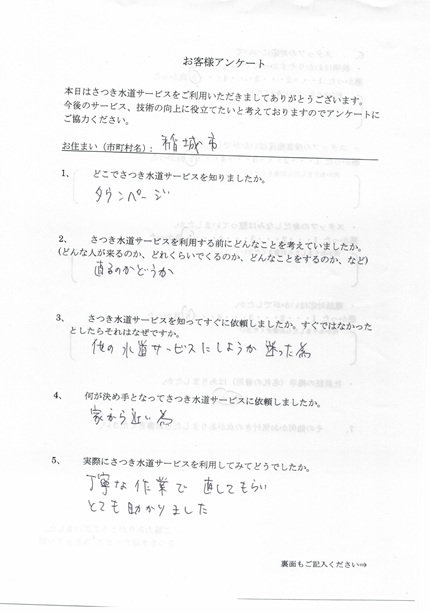 お客様アンケート
本日はさつき水道サービスをご利用いただきましてありがとうございます。
今後のサービス、技術の向上に役立てたいと考えておりますのでアンケートに
ご協力ください。
お住まい(市町村名): 稲城市
1、 どこでさつき水道サービスを知りましたか。
タウンページ
2、 さつき水道サービスを利用する前にどんなことを考えていましたか。
(どんな人が来るのか、どれくらいでくるのか、どんなことをするのか、など)
直るのかどうか
3、 さつき水道サービスを知ってすぐに依頼しましたか。すぐではなかった
としたらそれはなぜですか。
他の水道サービスにしようか迷った為
4、 何が決め手となってさつき水道サービスに依頼しましたか。
家から近い為
5、 実際にさつき水道サービスを利用してみてどうでしたか。
丁寧な作業で 直してもらい
とても助かりました
裏面もご記入ください⇒